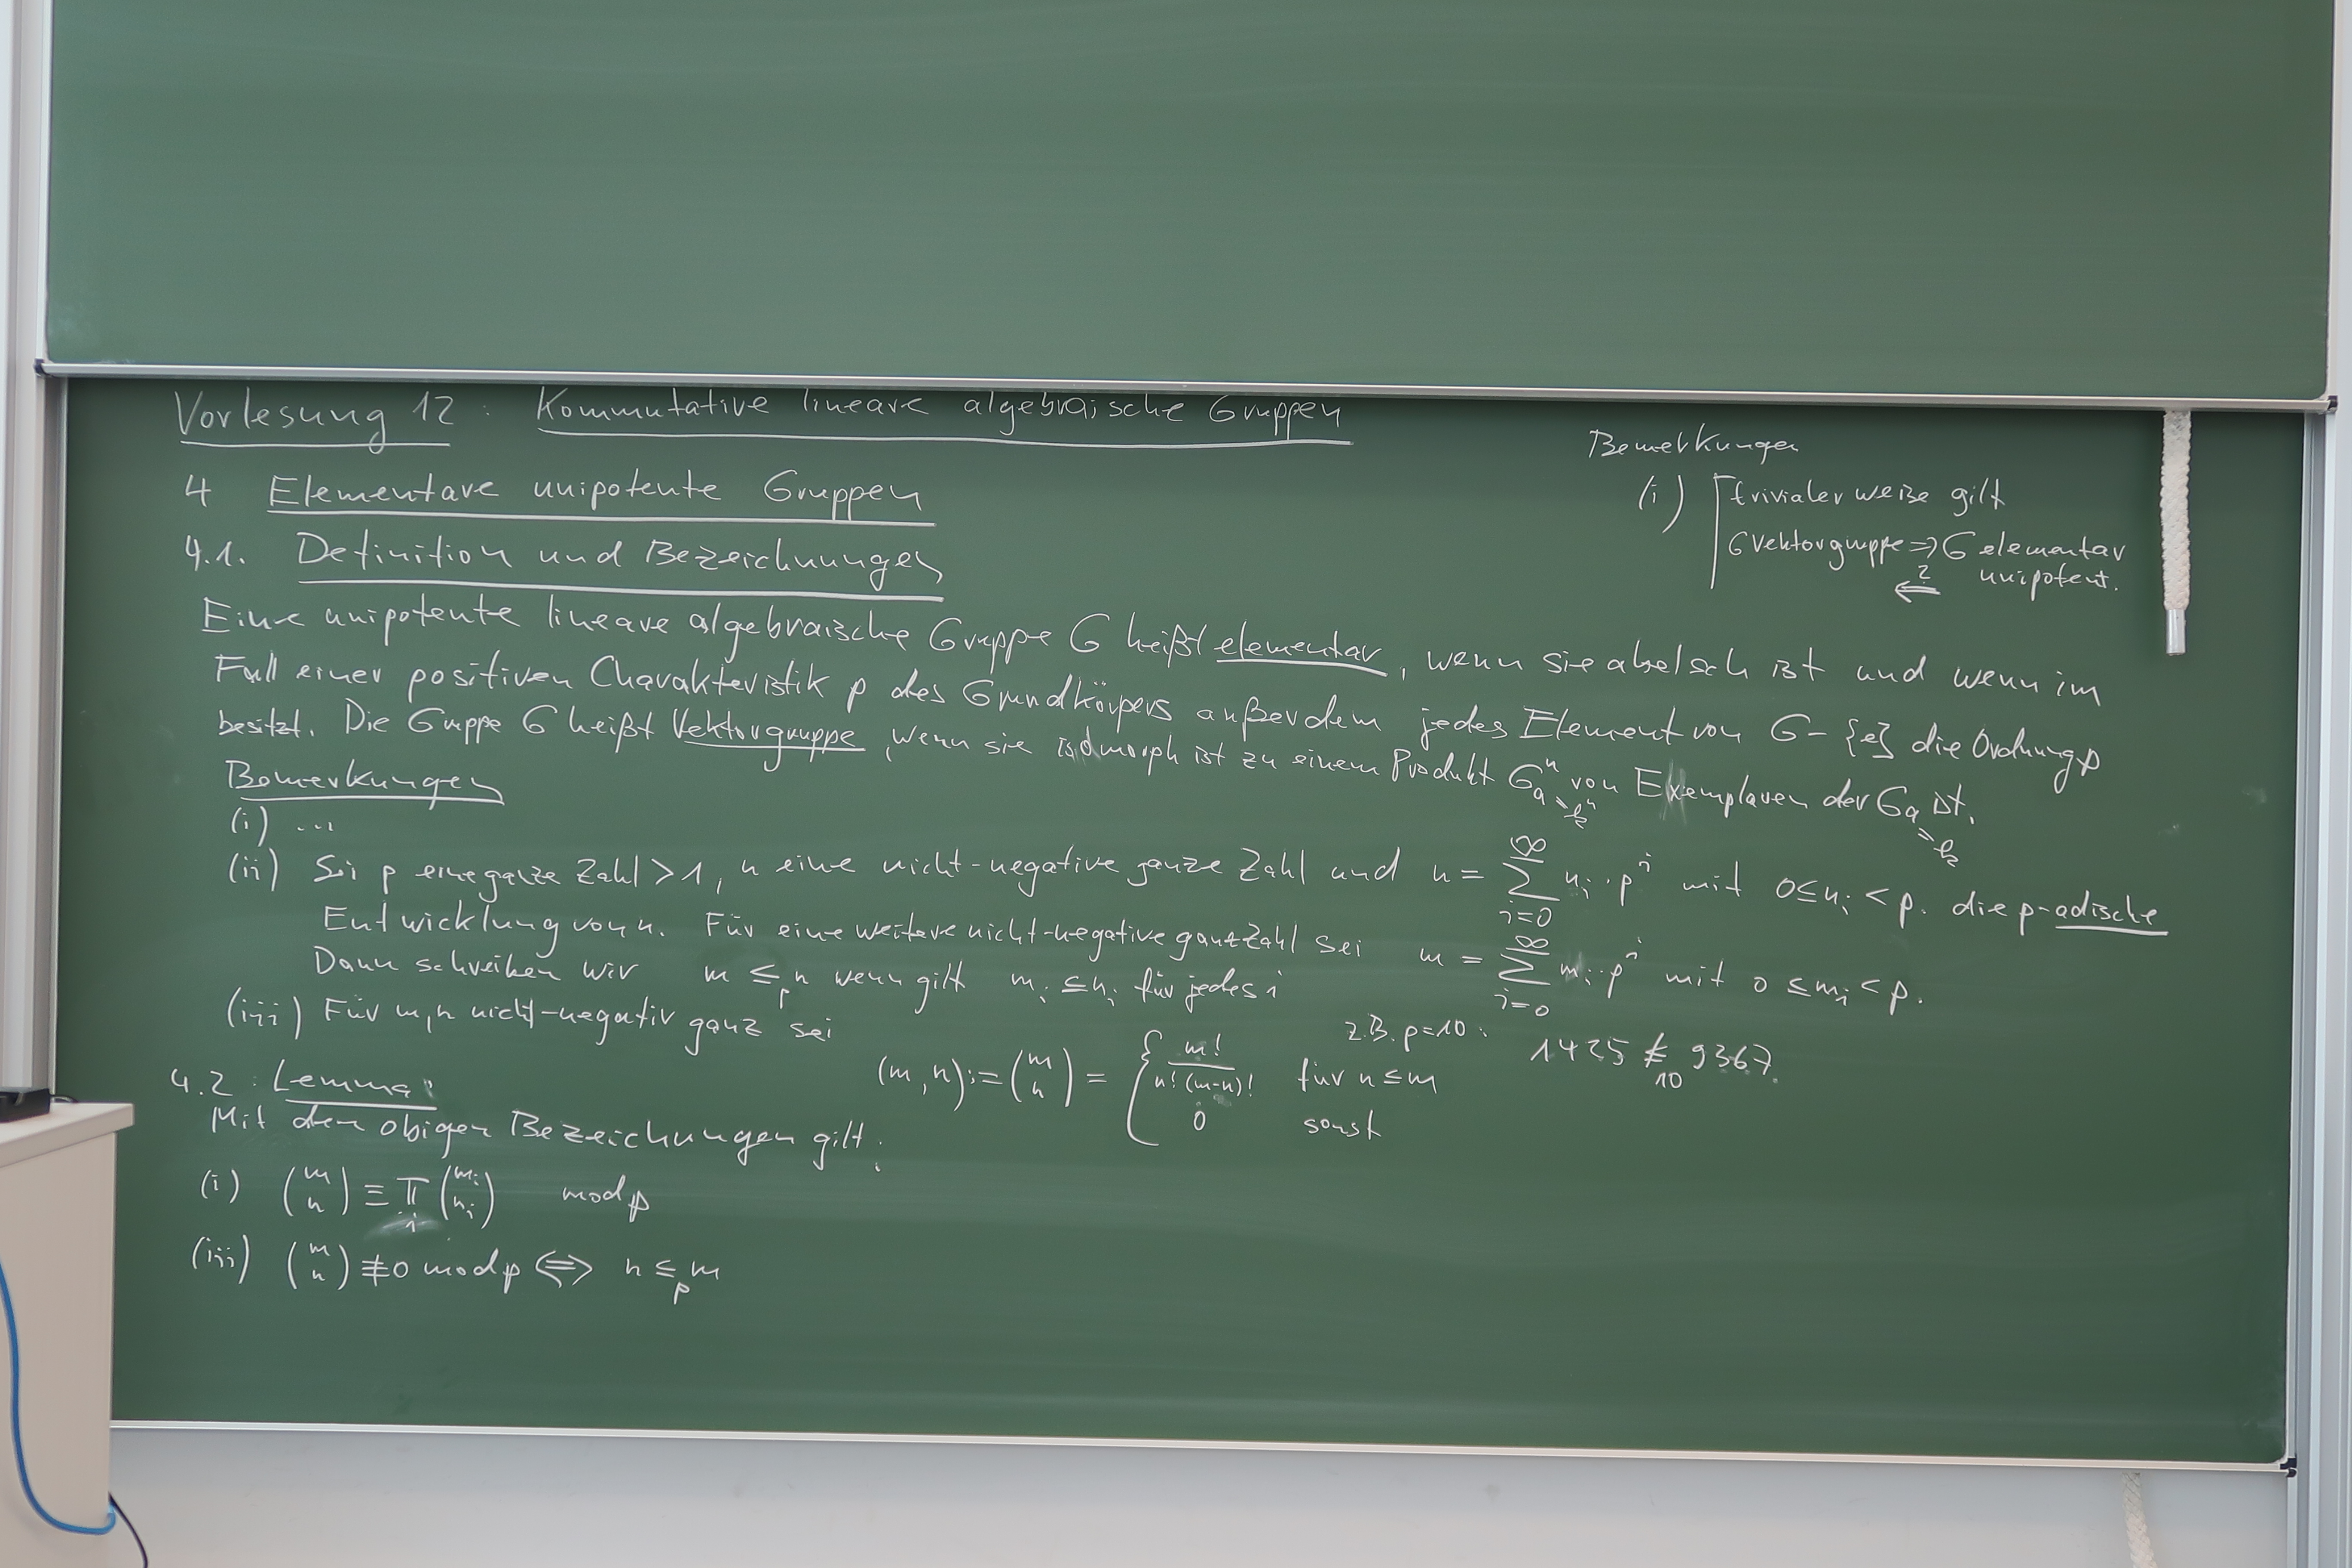 Vorlesung 12 : Kommutative lineare algebraische Gruppen
4 Elementare unipotente Gruppen
4.1. Definition und Bezeichnungen
Eine unipotente lineare algebraische Gruppe G heißt elementar, wenn sie abelsch ist und wenn im
Fall einer positiven Charakteristik p des Grundkörpers außerdem jedes Element von G - {e} die Ordnung p
besitzt. Die Gruppe G heißt Vektorgruppe, wenn sie isomorph ist zu einem Produkt G_a^n von Exemplaren der G_a ist.
= k^n
= k
Bemerkungen
(i) ...
(ii) Sei p eine ganze Zahl > 1, n eine nicht-negative ganze Zahl und n = ∑_{i=0}^∞ n_i · p^i mit 0 ≤ n_i < p. die p-adische
Entwicklung von n. Für eine weitere nicht-negative ganze Zahl sei m = ∑_{i=0}^∞ m_i · p^i mit 0 ≤ m_i < p.
Dann schreiben wir m ≤_p n wenn gilt m_i ≤ n_i für jedes i
z.B. p=10 : 1425 ≰_10 9367.
(iii) Für m,n nicht-negativ ganz sei
(m,n) := (m über n) = { m! / n!(m-n)! für n ≤ m
0 sonst
4.2 : Lemma:
Mit den obigen Bezeichungen gilt:
(i) (m über n) ≡ ∏_i (m_i über n_i) mod p
(iii) (m über n) ≢ 0 mod p ⟺ n ≤_p m
Bemerkungen
(i) trivialer weise gilt
G Vektorgruppe ⇒ G elementar
⇐? unipotent.